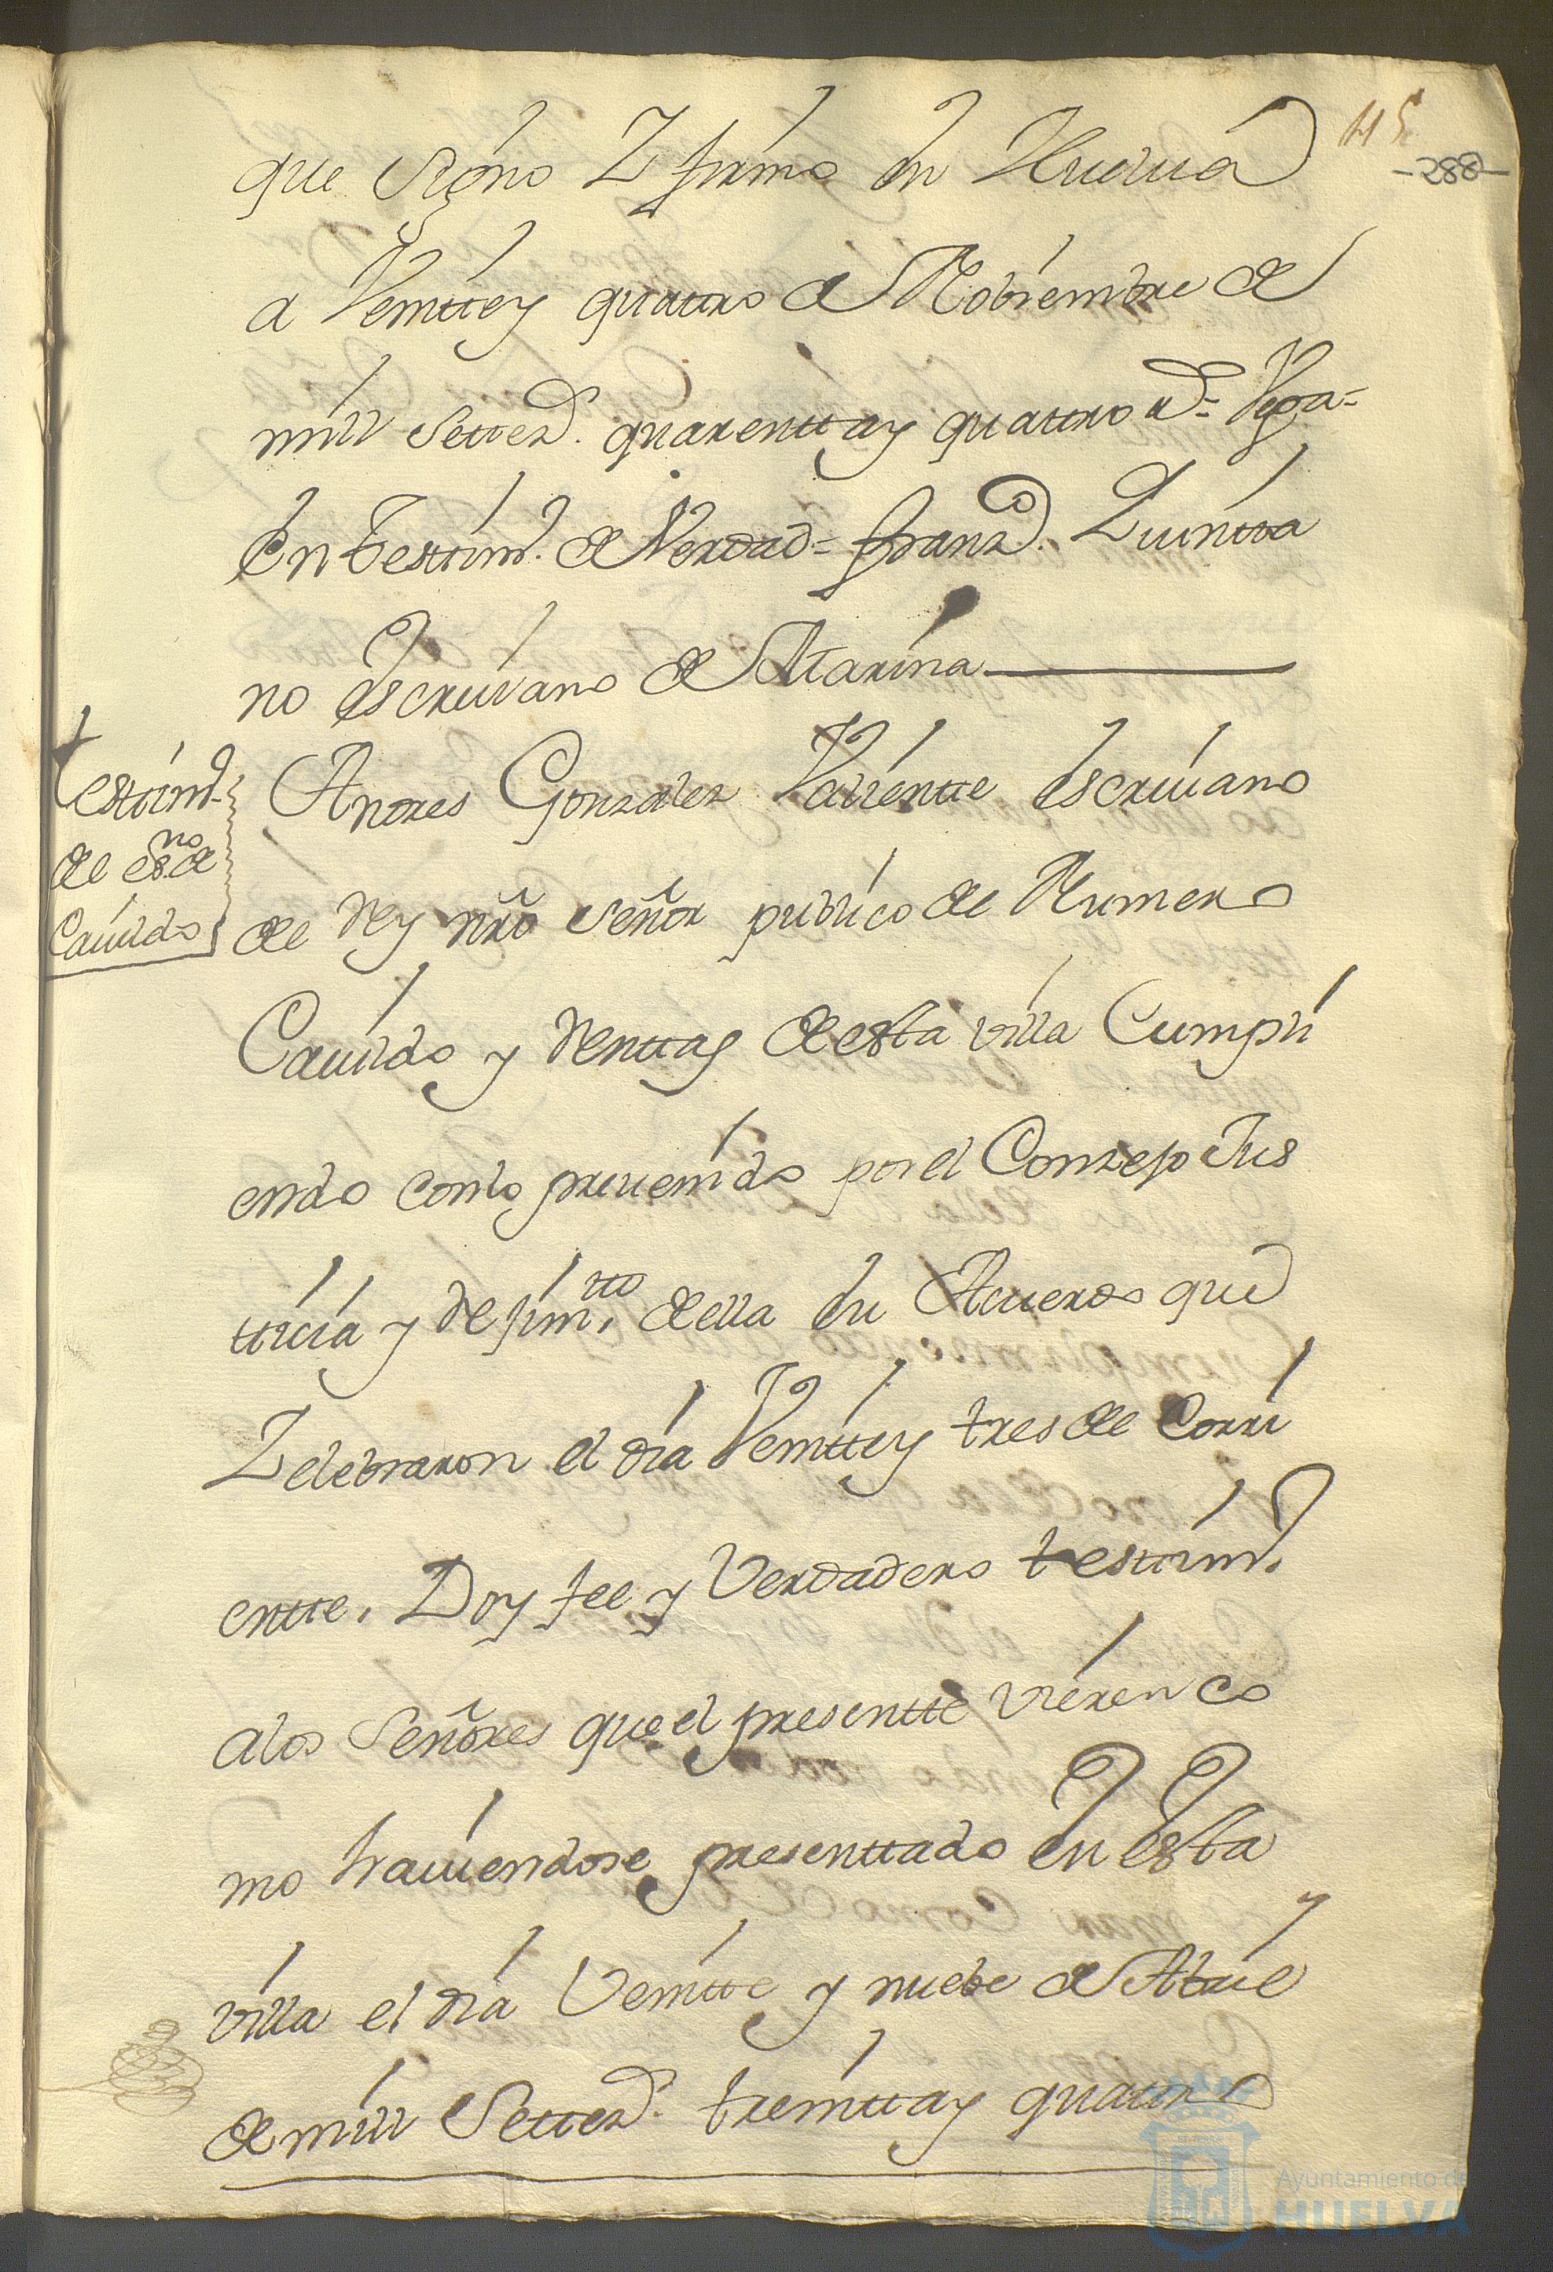 115
-288-
que signo Z firmo en Huelua
a Veintte y quattro de Nobiembre de
mill settezs. quarentta y quattro as = Vega =
En testtimo. de Verdad = Franzco. Quintta
no escriuano de Marina
Testtimo.
del esno. de
Cauildo
Andres Gonzalez Valientte escriuano
del Rey nrõ señor publico del Numero
Cauildo y Renttas de esta villa Cumpli
endo con lo preuenido por el Conzejo Jus
tticia y Rejimtto. de ella en Acuerdo que
Zelebraron el dia Veintte y tres del Corri
entte, Doy fee y Verdadero testtimo.
a los Señores que el presentte vieren co
mo hauiendose presenttado en esta
villa el dia Veintte y nuebe de Abril
de mill Settezs. treintta y quattro
Ayuntamiento de
HUELVA